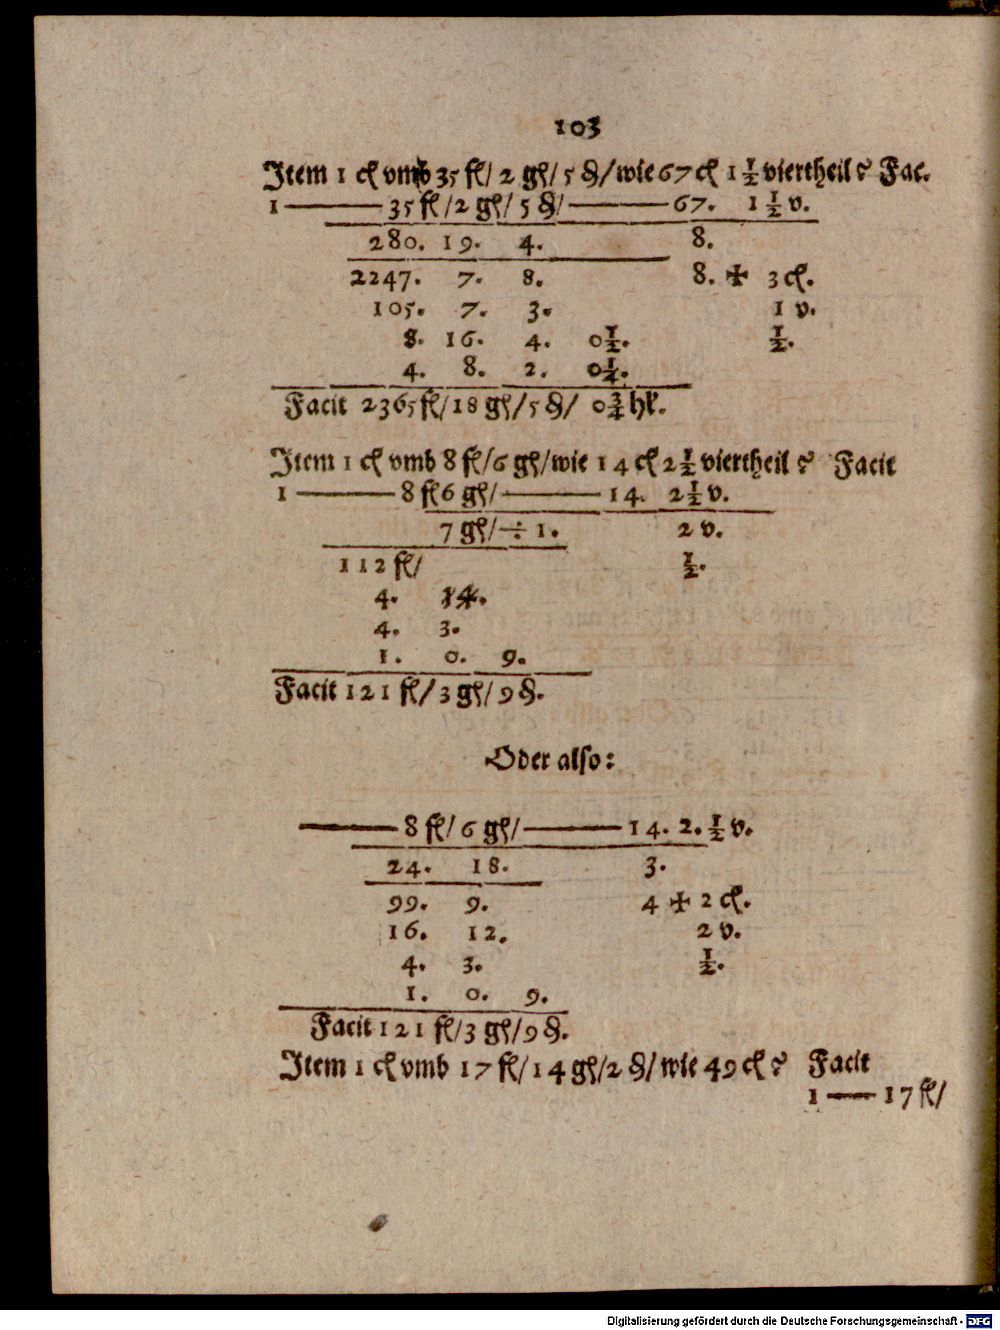 103
Item 1 cꝉ vmb 35 fl/ 2 gl/ 5 ₰/wie 67 cꝉ 1 1/2 viertheil? Fac.
1 —— 35 fl/2 gl/ 5 ₰/ —— 67. 1 1/2 v.
280. 19. 4. 8.
2247. 7. 8. 8. ✠ 3 cꝉ.
105. 7. 3. 1 v.
8. 16. 4. 0 1/2. 1/2.
4. 8. 2. 0 1/4.
Facit 2365 fl/18 gl/5 ₰/ 0 3/4 hl.
Item 1 cꝉ vmb 8 fl/6 gl/wie 14 cꝉ 2 1/2 viertheil? Facit
1 —— 8 fl 6 gl/ —— 14. 2 1/2 v.
7 gl/÷ 1. 2 v.
112 fl/ 1/2.
4. 14.
4. 3.
1. 0. 9.
Facit 121 fl/3 gl/9 ₰.
Oder also:
—— 8 fl/ 6 gl/ —— 14. 2. 1/2 v.
24. 18. 3.
99. 9. 4 ✠ 2 cꝉ.
16. 12. 2 v.
4. 3. 1/2.
1. 0. 9.
Facit 121 fl/3 gl/9 ₰.
Item 1 cꝉ vmb 17 fl/14 gl/2 ₰/ wie 49 cꝉ? Facit
1 —— 17 fl/
Digitalisierung gefördert durch die Deutsche Forschungsgemeinschaft - DFG